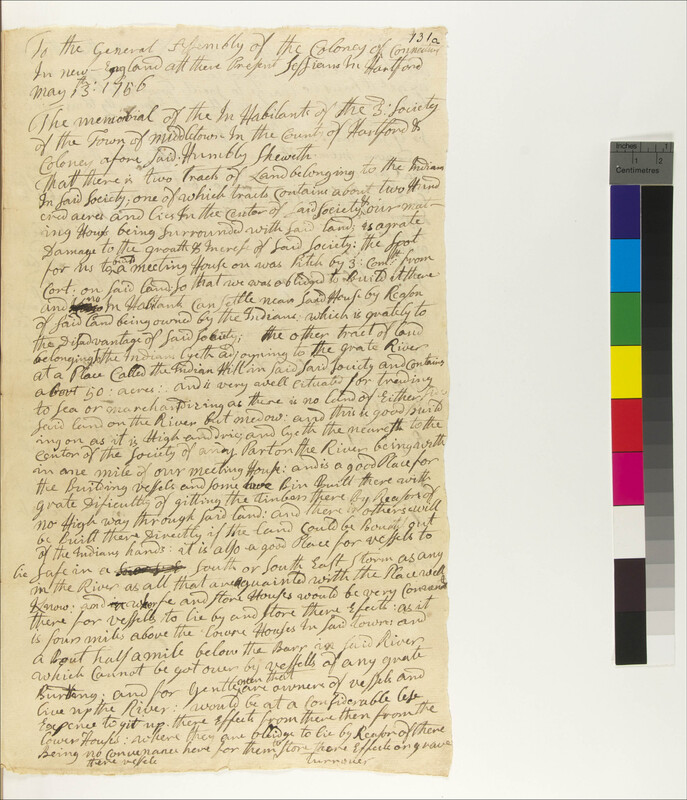 131a
To the General Assembly of the Coloney of Connecticut
In new England att there Present Sessions In Hartford
may 13: 1756
The memorial of the In Habitants of the 3: Society
of the Town of middletown In the County of Hartford &
Coloney afore Said: Humbly Sheweth
That there is two Tracts of Land belonging to the Indians
In Said Society; one of which tracts Containe about two Hund
ered acres and lies In the Center of Said Society & our meet-
ing House being Surrounded with Said land; is a grate
Damage to the grouth & Increse of Said Society: the Spot
for us to build a meeting House on was Pitch by 3: Comtt from
Cort: on Said land: So that we was obliged to Build it there
and no In Habitant Can Settle near Said House by Reason
of Said land being owned by the Indians; which is grately to
the Disadvantage of Said Society; the other tract of land
belonging to the Indians Lyeth adjoyning to the grate River
at a Place Called the Indian Hill in Said Society and Contains
about 50: acres: and is very well Cituated for treading
to Sea or marchandizing as there is no land of Either Side
Said land on the River but medow: and this is good build
ing on as it is High and dry and Lyeth the neareth to the
Center of the Society of any Part on the River being with
in one mile of our meeting House: and is a good Place for
the Building vesels and Some bin Built there with
grate Dificulty of gitting the timbers there by Reason of
no High way through Said land: and there is others will
be Built there Directly if the land Could be Bought out
of the Indians hands: it is also a good Place for vessels to
lie Safe in a South or South East Storm as any
in the River as all that are aquainted with the Place well
Know: and worfe and Store Houses would be very
there for vessells to lie by and Store there Efects: as it
is fours miles above the lowre Houses In Said town: and
about half a mile below the Barr in Said River
which Cannot be got over by vessells of any grate
Burthing: and for Gentlemen that are owners of vessells and
live up the River: would be at a Considerable less
Expence to git up there Effects from there then from the
lower Houses: where they are oblidge to lie by Reason of there
Being no Convenance here for them to Store there Effects or
there vessels
turnover